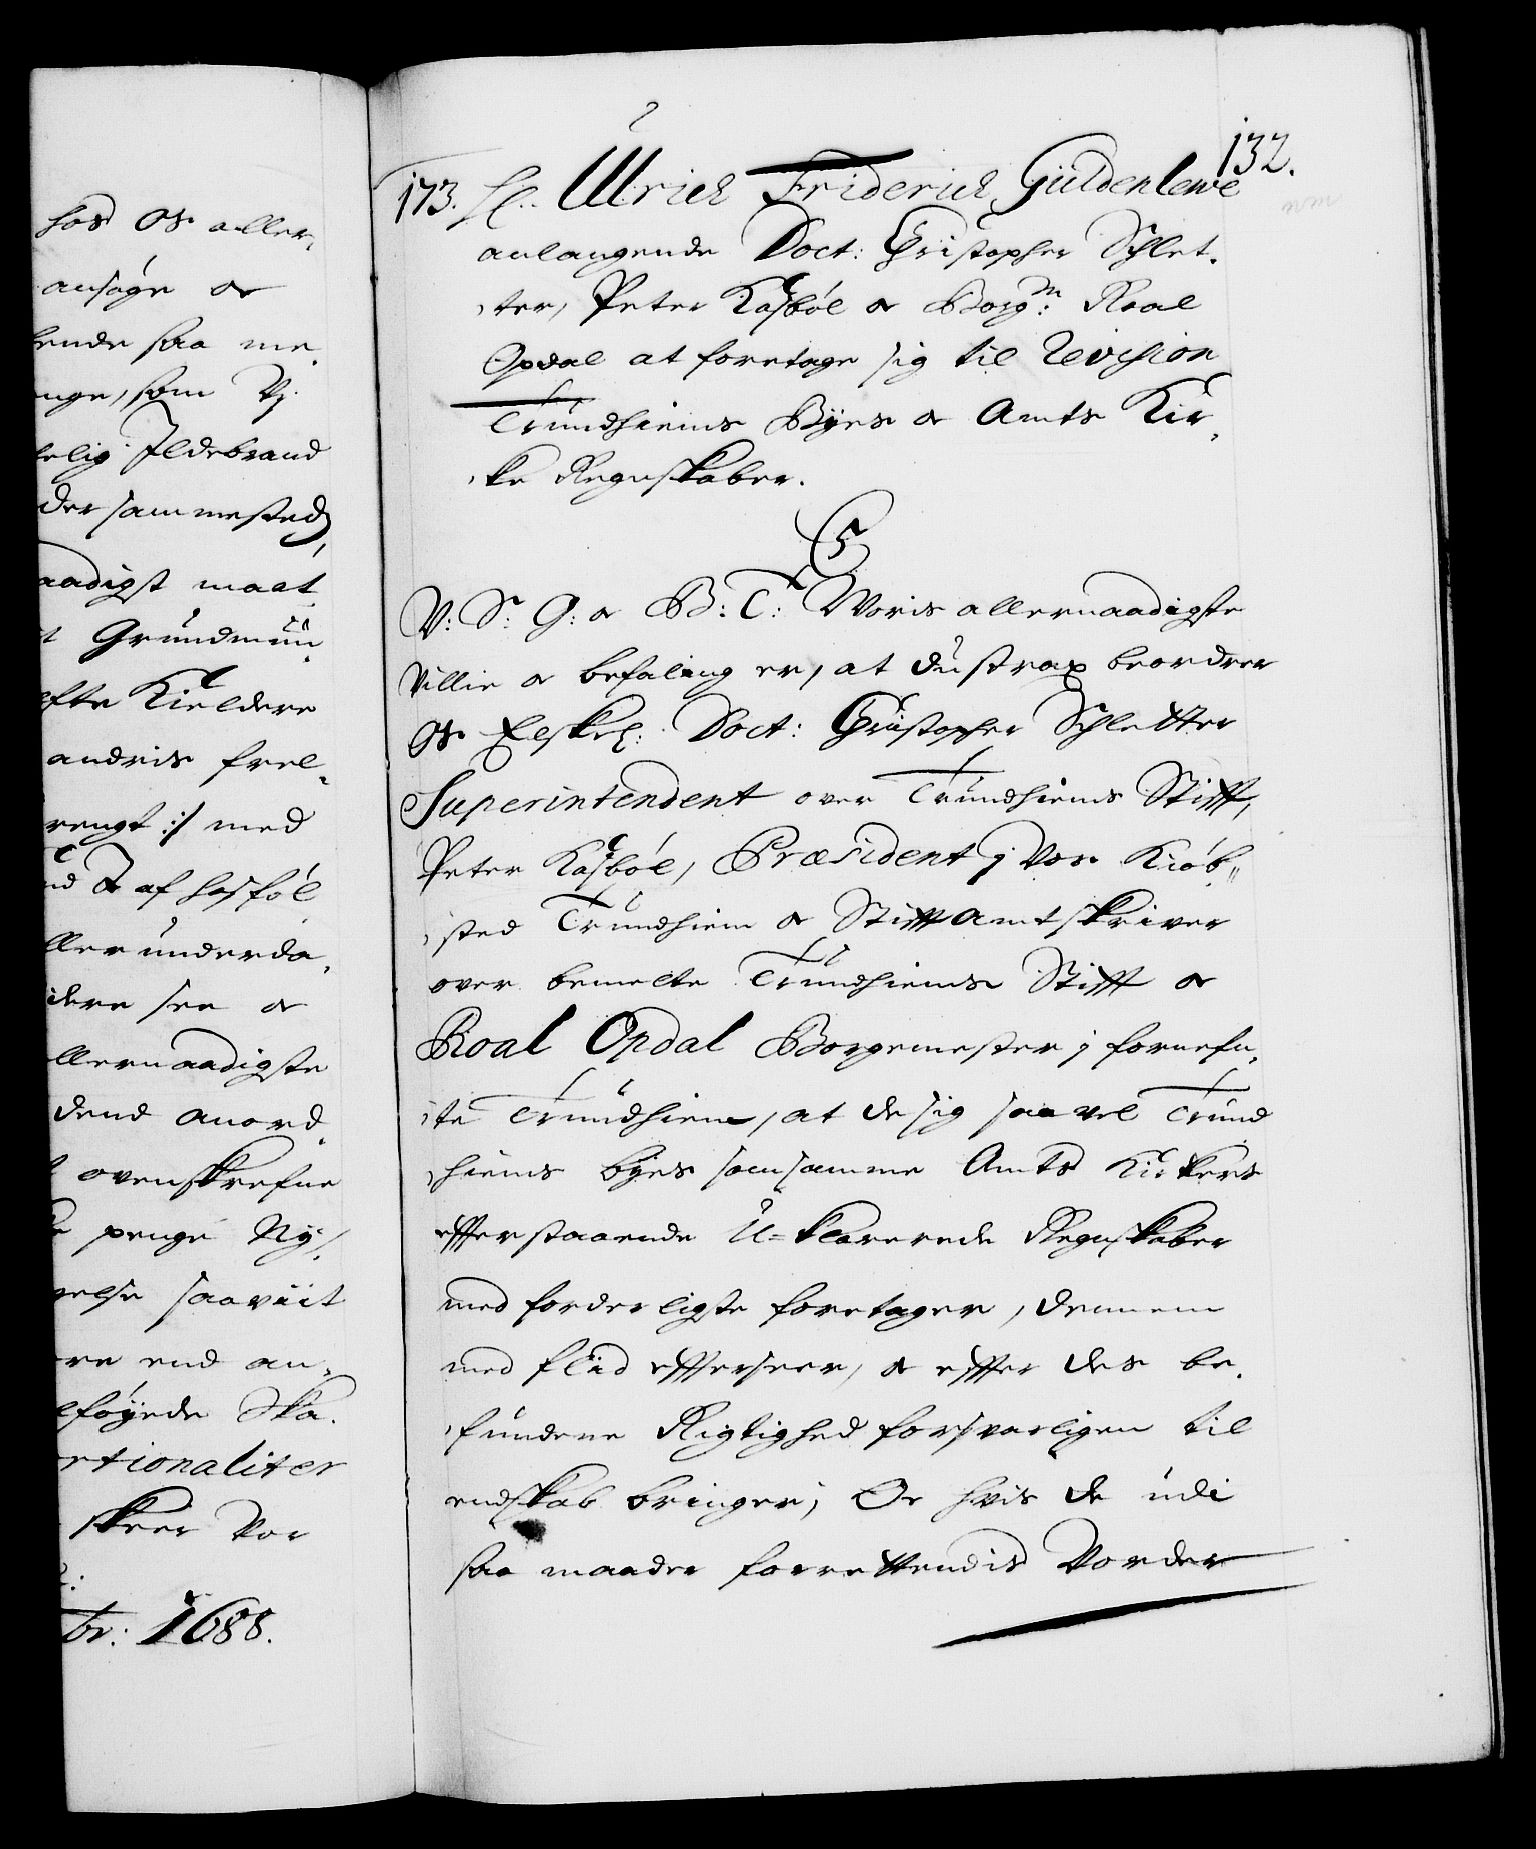 hos os aller,
ansøge oc
hende saa me,
nge, som Vj
telig Ildebrand
der sammested,
aadigst maat,
t Grundmüü,
efte Kieldere
andris frel,
rengt :/ med
af hosføl,
ller underda,
idere see oc
llernaadigste
dend anord,
ovenskrefne
penge Ny,
gelse saaviit
re end an,
lføyede Ska,
rtionaliter
skeer Vor
br: 1688.
132.
173. H. Ulrich Friderich Güldenlewe
anlangende Doct: Christopher Schlet,
ter, Peter Kasbøl oc Borgm: Roal
Opdal at foretage sig til Revision
Trundhiems Byes oc Amts Kir,
ke Regnskaber.
C5
V: S: G: oc B: T: Woris allernaadigste
Villie oc befaling er, at du strax beordrer
os Elskel: Doct: Christopher Schletter
Superintendent over Trundhiems Stifft,
Peter Kasbøl, Præsident j Vor Kiøb,,
sted Trundhiem oc Stifftamtskriver
over bemelte Trundhiems Stifft oc
Roal Opdal Borgemester j fornefn,
te Trundhiem, at de sig saa vel Trund
hiems byes som samme Amts Kirkers
efferstaaende U=klarerede Regnskaber
med forderligste foretager, dennem
med fliid effterseer, oc effter des be,
fundene Rigtighed forsvarligen til
endskab bringer; Oc hvis de udi
saa maader forrettendis Vorder